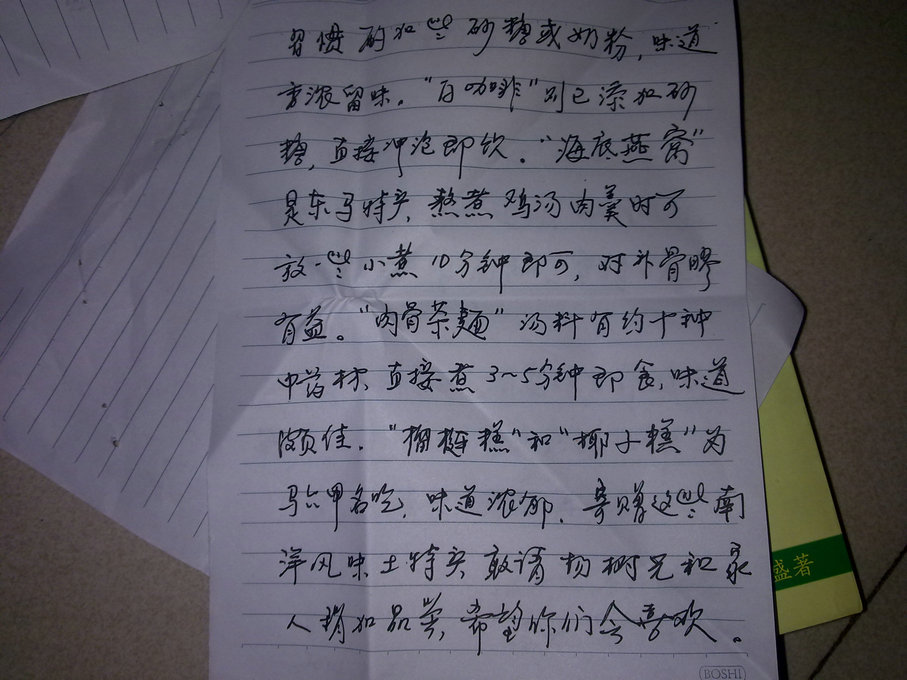 习惯酌加些砂糖或奶粉，味道
香浓留味。“白咖啡”则已添加砂
糖，直接冲泡即饮。“海底燕窝”
是东马特产，熬煮鸡汤肉羹时可
放一些小煮10分钟即可，对补骨膠
有益。“肉骨茶麵”汤料有约十种
中药材，直接煮3～5分钟即食，味道
颇佳。“榴梿糕”和“椰子糕”为
马六甲名吃，味道浓郁。寄赠这些南
洋风味土特产，敢请杨树兄和家
人稍加品尝，希望你们会喜欢。
盛著
BOSHI